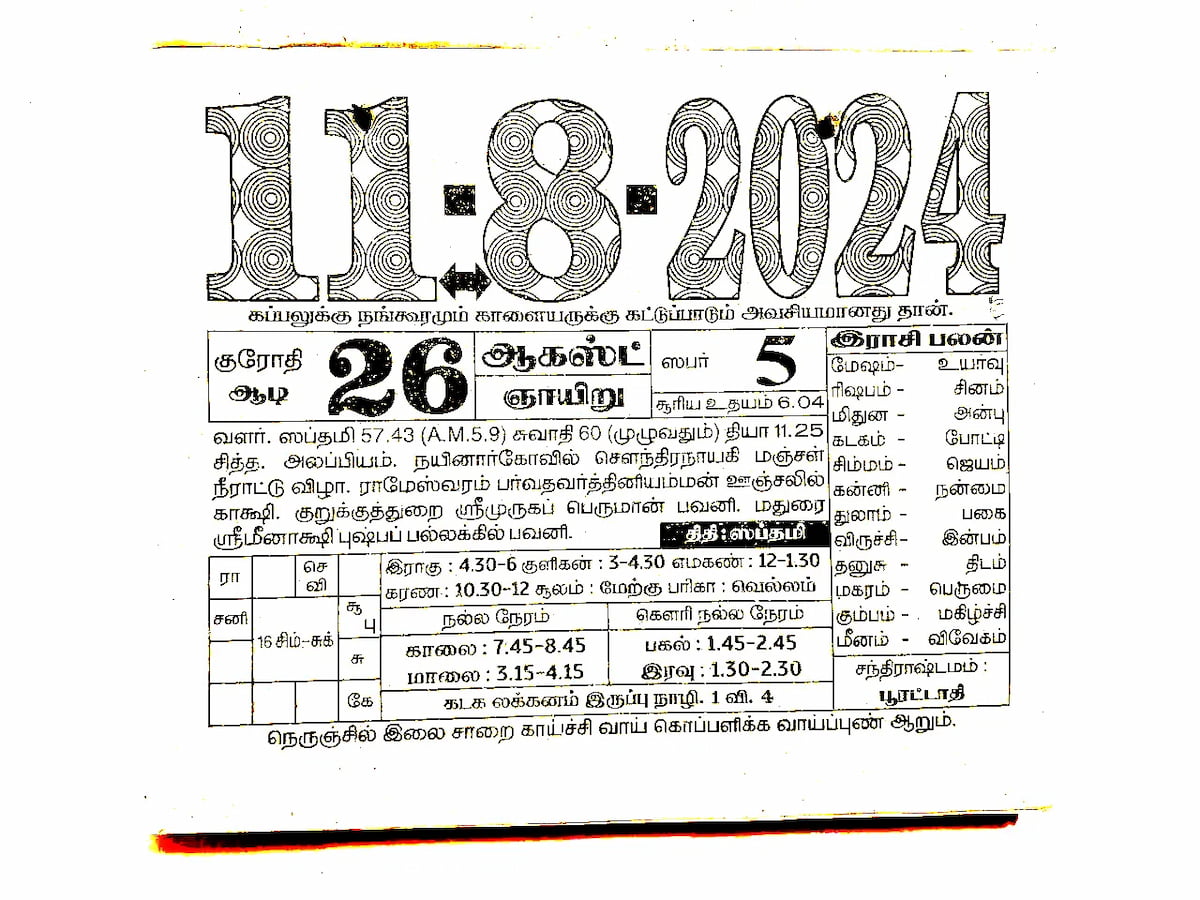 11-8-2024
கப்பலுக்கு நங்கூரமும் காளையருக்கு கட்டுப்பாடும் அவசியமானது தான்.
குரோதி
ஆடி
26
ஆகஸ்ட்
ஞாயிறு
ஸபர் 5
சூரிய உதயம் 6.04
வளர். ஸப்தமி 57.43 (A.M.5.9) சுவாதி 60 (முழுவதும்) தியா 11.25
சித்த. அலப்பியம். நயினார்கோவில் சௌந்திரநாயகி மஞ்சள்
நீராட்டு விழா. ராமேஸ்வரம் பர்வதவர்த்தினியம்மன் ஊஞ்சலில்
காக்ஷி. குறுக்குத்துறை ஸ்ரீமுருகப் பெருமான் பவனி. மதுரை
ஸ்ரீமீனாக்ஷி புஷ்பப் பல்லக்கில் பவனி.
திதி : ஸப்தமி
இராசி பலன்
மேஷம்- உயர்வு
ரிஷபம் - சினம்
மிதுன - அன்பு
கடகம் - போட்டி
சிம்மம் - ஜெயம்
கன்னி - நன்மை
துலாம் - பகை
விருச்சி- இன்பம்
தனுசு - திடம்
மகரம் - பெருமை
கும்பம் - மகிழ்ச்சி
மீனம் - விவேகம்
சந்திராஷ்டமம் :
பூரட்டாதி
ரா
செ
வி
சனி
சூ
பு
16 சிம்-சுக்
சு
கே
இராகு : 4.30-6 குளிகன் : 3-4.30 எமகண் : 12-1.30
கரண : 10.30-12 சூலம் : மேற்கு பரிகா : வெல்லம்
நல்ல நேரம்
கௌரி நல்ல நேரம்
காலை : 7.45-8.45
பகல் : 1.45-2.45
மாலை : 3.15-4.15
இரவு : 1.30-2.30
கடக லக்கனம் இருப்பு நாழி. 1 வி. 4
நெருஞ்சில் இலை சாறை காய்ச்சி வாய் கொப்பளிக்க வாய்ப்புண் ஆறும்.